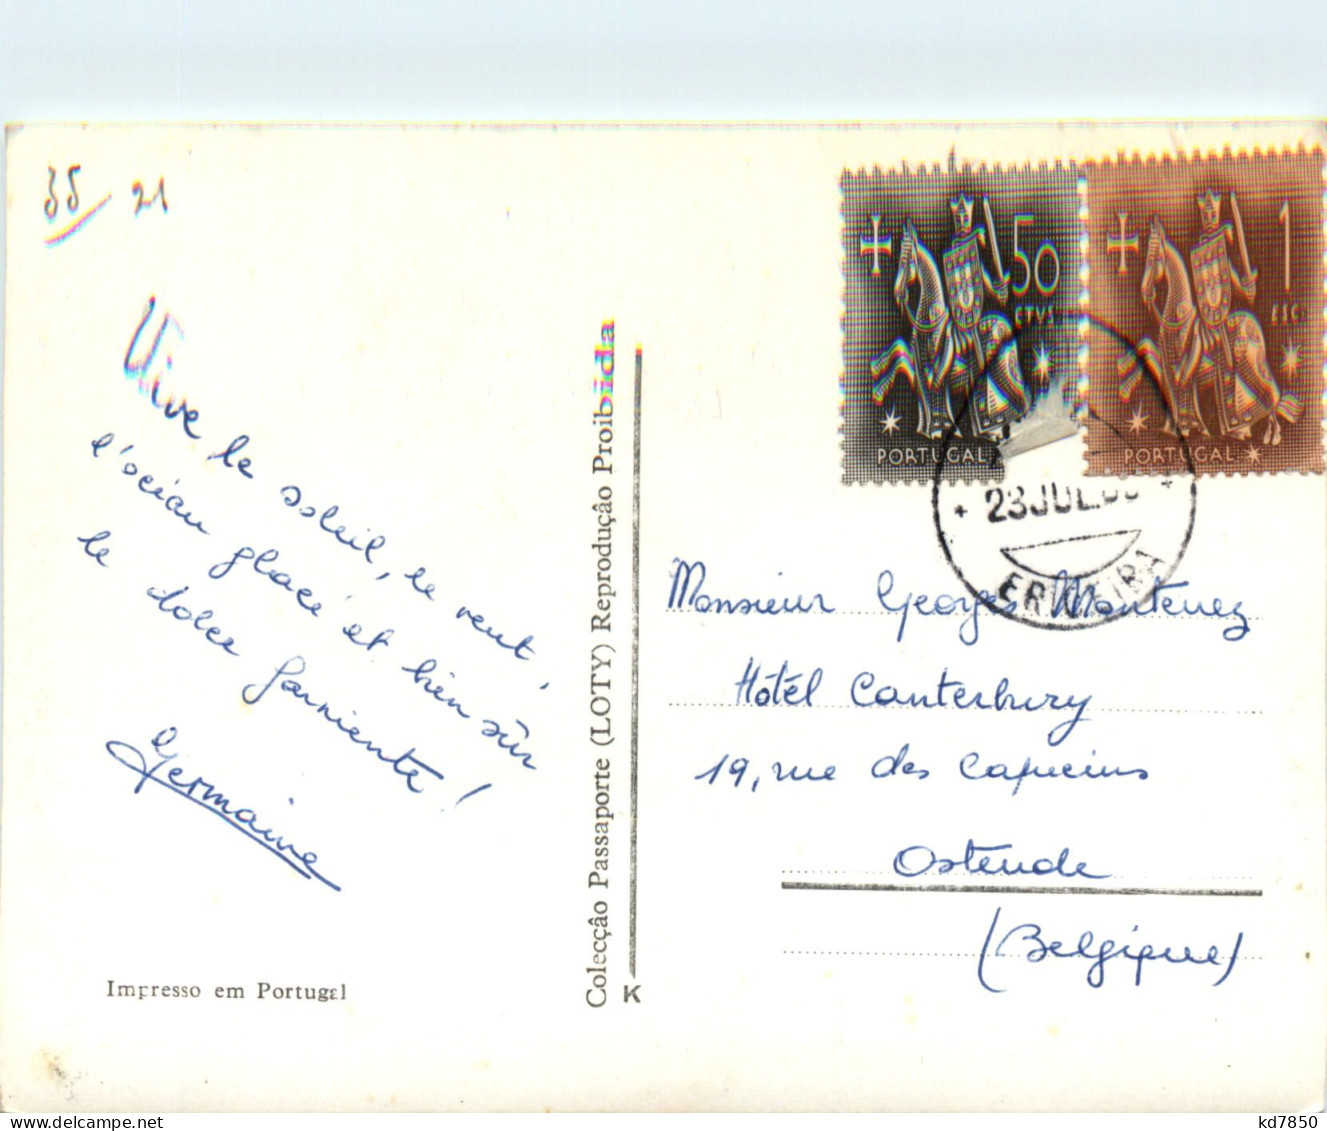 35/ 21
Vive le soleil, le vent,
l'océan glacé et bien sûr
le dolce farniente !
Germaine
Impresso em Portugal
Colecção Passaporte (LOTY) Reprodução Proibida
K
50
CTVS
PORTUGAL
1
ESC.
PORTUGAL
23 JUL.
ERICEIRA
Monsieur Georges Montenez
Hôtel Canterbury
19, rue des Capucins
Ostende
(Belgique)
kd7850